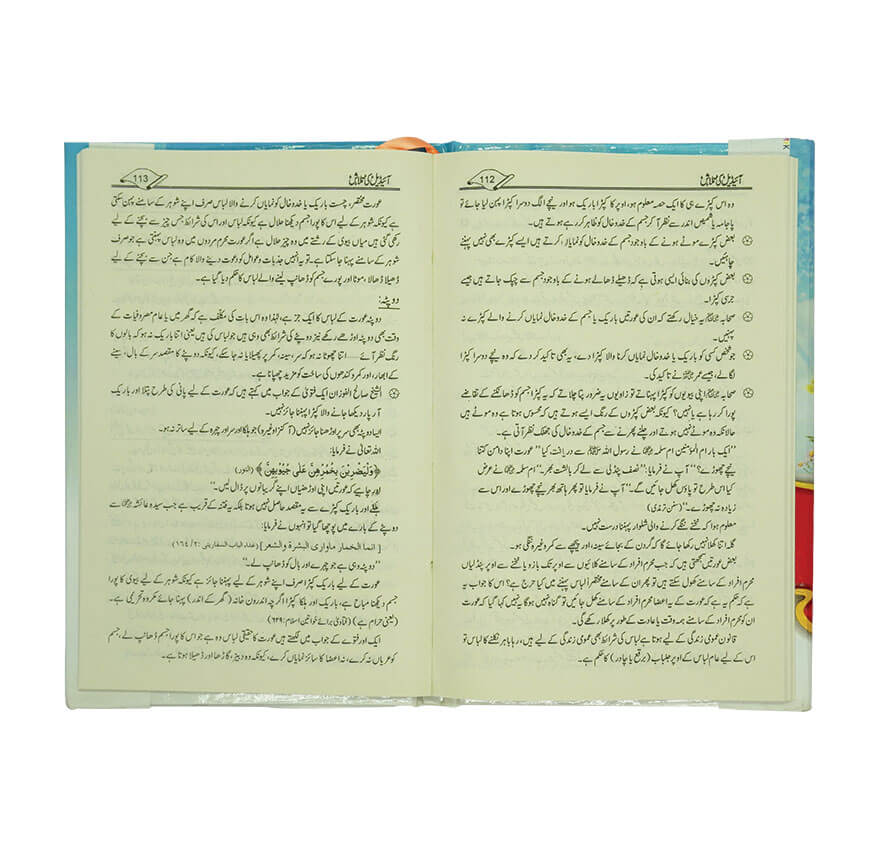 112
آئیڈیل کی تلاش
وہ اس کپڑے ہی کا ایک حصہ معلوم ہو، اوپر کا کپڑا باریک ہو اور نیچے الگ دوسرا کپڑا پہن لیا جائے تو
پاجامہ یا قمیص اندر سے نظر آ کر جسم کے خدوخال کو ظاہر کر رہے ہوتے ہیں۔
بعض کپڑے موٹے ہونے کے باوجود جسم کے خدوخال کو نمایاں کرتے ہیں ایسے کپڑے بھی نہیں پہننے
چاہئیں۔
بعض کپڑوں کی بنائی ایسی ہوتی ہے کہ ڈھیلے ڈھالے ہونے کے باوجود جسم سے چپک جاتے ہیں جیسے
جرسی کپڑا۔
صحابہ یہ خیال رکھتے کہ ان کی عورتیں باریک یا جسم کے خدوخال نمایاں کرنے والے کپڑے نہ
پہنیں۔
جو شخص کسی کو باریک یا خدوخال نمایاں کرنا والا کپڑا دے، یہ بھی تاکید کر دے کہ وہ نیچے دوسرا کپڑا
لگا لے، جیسے عمر نے تاکید کی۔
صحابہ اپنی بیویوں کو کپڑا پہناتے تو زاویوں یہ ضرور پتا چلاتے کہ یہ کپڑا جسم کو ڈھانکنے کے تقاضے
پورا کر رہا ہے یا نہیں؟ کیونکہ بعض کپڑوں کے رنگ ایسے ہوتے ہیں کہ محسوس ہوتا ہے وہ موٹے ہیں
حالانکہ وہ موٹے نہیں ہوتے اور چلنے پھرنے سے جسم کے خدوخال کی جھلک نظر آتی ہے۔
”ایک بار ام المؤمنین ام سلمہ نے رسول اللہ سے دریافت کیا ”عورت اپنا دامن کتنا
نیچے چھوڑے؟“ آپ نے فرمایا: ”نصف پنڈلی سے لے کر بالشت بھر۔“ ام سلمہ نے عرض
کیا اس طرح تو پاؤں کھل جائیں گے۔“ آپ نے فرمایا تو پھر ہاتھ بھر نیچے چھوڑے اور اس سے
زیادہ نہ چھوڑے۔“ (سنن ترمذی)
معلوم ہوا کہ ٹخنے ننگے کرنے والی شلوار پہننا درست نہیں۔
گلہ اتنا کھلا نہیں رکھا جائے گا کہ گردن کے بجائے سینہ، اور پیچھے سے کمر وغیرہ ننگی ہو۔
بعض عورتیں سمجھتی ہیں کہ جب محرم افراد کے سامنے کلائیوں سے اوپر تک بازو یا ٹخنے سے اوپر پنڈلیاں
محرم افراد کے سامنے کھول سکتے ہیں تو پھر ان کے سامنے مختصر لباس پہننے میں کیا حرج ہے؟ اس کا جواب یہ
ہے کہ حکم یہ ہے کہ عورت کے یہ اعضا محرم افراد کے سامنے کھل جائیں تو گناہ نہیں ہوگا یہ نہیں کہا گیا کہ عورت
ان کو محرم افراد کے سامنے ہمہ وقت یا عادت کے طور پر کھلا رکھے گی۔
قانون عمومی زندگی کے لیے ہوتا ہے لباس کی شرائط بھی عمومی زندگی کے لیے ہیں، رہا باہر نکلنے کا لباس تو
اس کے لیے عام لباس کے اوپر جلباب (برقع یا چادر) کا حکم ہے۔
113
آئیڈیل کی تلاش
عورت مختصر، چست باریک یا خدوخال کو نمایاں کرنے والا لباس صرف اپنے شوہر کے سامنے پہن سکتی
ہے کیونکہ شوہر کے لیے اس کا پورا جسم دیکھنا حلال ہے کیونکہ لباس اور اس کی شرائط جس چیز سے بچنے کے لیے
رکھی گئی ہیں میاں بیوی کے رشتے میں وہ چیز حلال ہے اگر عورت محرم مردوں میں وہ لباس پہنتی ہے جو صرف
شوہر کے سامنے پہنا جا سکتا ہے۔ تو یہ انہیں جذبات و عوامل کو دعوت دینے والا کام ہے جن سے بچنے کے لیے
ڈھیلا ڈھالا، موٹا اور پورے جسم کو ڈھانپ لینے والے لباس کا حکم دیا گیا ہے۔
دوپٹہ:
دوپٹہ عورت کے لباس کا ایک جز ہے، لہٰذا وہ اس بات کی مکلف ہے کہ گھر میں یا عام مصروفیات کے
وقت بھی دوپٹہ اوڑھے رکھے نیز دوپٹے کی شرائط بھی وہی ہیں جو لباس کی ہیں یعنی اتنا باریک نہ ہو کہ بالوں کا
رنگ نظر آئے...... اتنا چھوٹا نہ ہو کہ سر، سینہ، کمر پر پھیلایا نہ جا سکے، کیونکہ دوپٹے کا مقصد سر کے بال، سینے
کے ابھار، اور کمر و کندھوں کی ساخت کو مزید چھپانا ہے۔
الشیخ صالح الفوزان ایک فتویٰ کے جواب میں کہتے ہیں کہ عورت کے لیے پانی کی طرح پتلا اور باریک
آر پار دیکھا جانے والا کپڑا پہننا جائز نہیں۔
ایسا دوپٹہ بھی سر پر اوڑھنا جائز نہیں (آرگنزا وغیرہ) جو ہلکا اور سر اور چہرہ کے لیے ساتر نہ ہو۔
اللہ تعالیٰ نے فرمایا:
﴿وَلْيَضْرِبْنَ بِخُمُرِهِنَّ عَلَى جُيُوبِهِنَّ﴾ (النور)
اور چاہیے کہ عورتیں اپنی اوڑھنیاں اپنے گریبانوں پر ڈال لیں۔“
ہلکے اور باریک کپڑے سے یہ مقصد حاصل نہیں ہوتا بلکہ یہ فتنہ کے قریب ہے جب سیدہ عائشہ سے
دوپٹے کے بارے میں پوچھا گیا تو انہوں نے فرمایا:
[انما الخمار ماواری البشرة والشعر] (غذاء الباب السفارینی: ۲/ ۱۶۴)
”دوپٹہ وہی ہے جو چہرے اور بال کو ڈھانپ لے۔“
عورت کے لیے باریک کپڑا صرف اپنے شوہر کے لیے پہننا جائز ہے کیونکہ شوہر کے لیے عورت کا پورا
جسم دیکھنا مباح ہے، باریک اور ہلکا کپڑا اگرچہ اندرون خانہ (گھر کے اندر) پہنا جائے مکروہ تحریمی ہے۔
(یعنی حرام ہے) (فتاویٰ برائے خواتین اسلام: ۶۲۹)
ایک اور فتوے کے جواب میں لکھتے ہیں عورت کا حقیقی لباس وہ ہے جو اس کا پورا جسم ڈھانپ لے، جسم
کو عریاں نہ کرے، نہ اعضا کا سائز نمایاں کرے، کیونکہ وہ دبیز، گاڑھا اور ڈھیلا ہوتا ہے۔